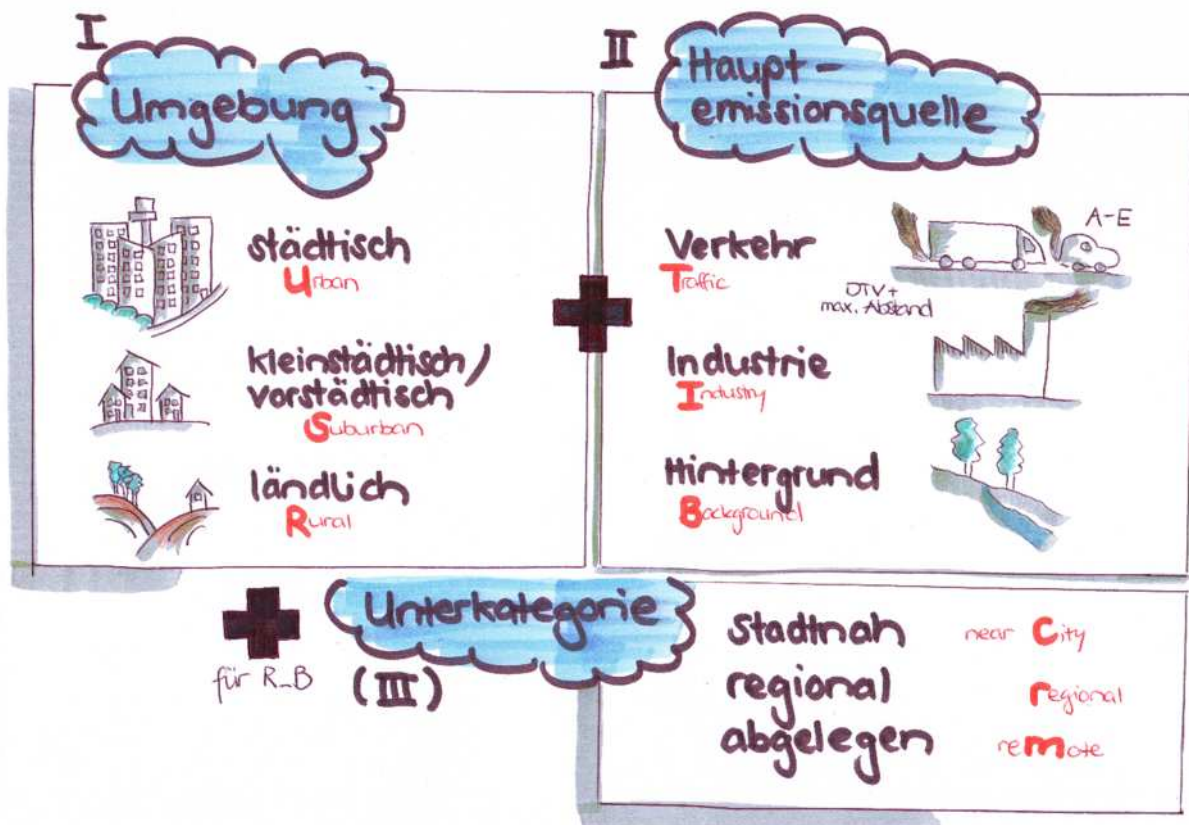 I
Umgebung
städtisch
Urban
kleinstädtisch/
vorstädtisch
Suburban
ländlich
Rural
II
Haupt-
emissionsquelle
Verkehr
Traffic
A-E
DTV+
max. Abstand
Industrie
Industry
Hintergrund
Background
für R_B
Unterkategorie
(III)
stadtnah near City
regional regional
abgelegen remote